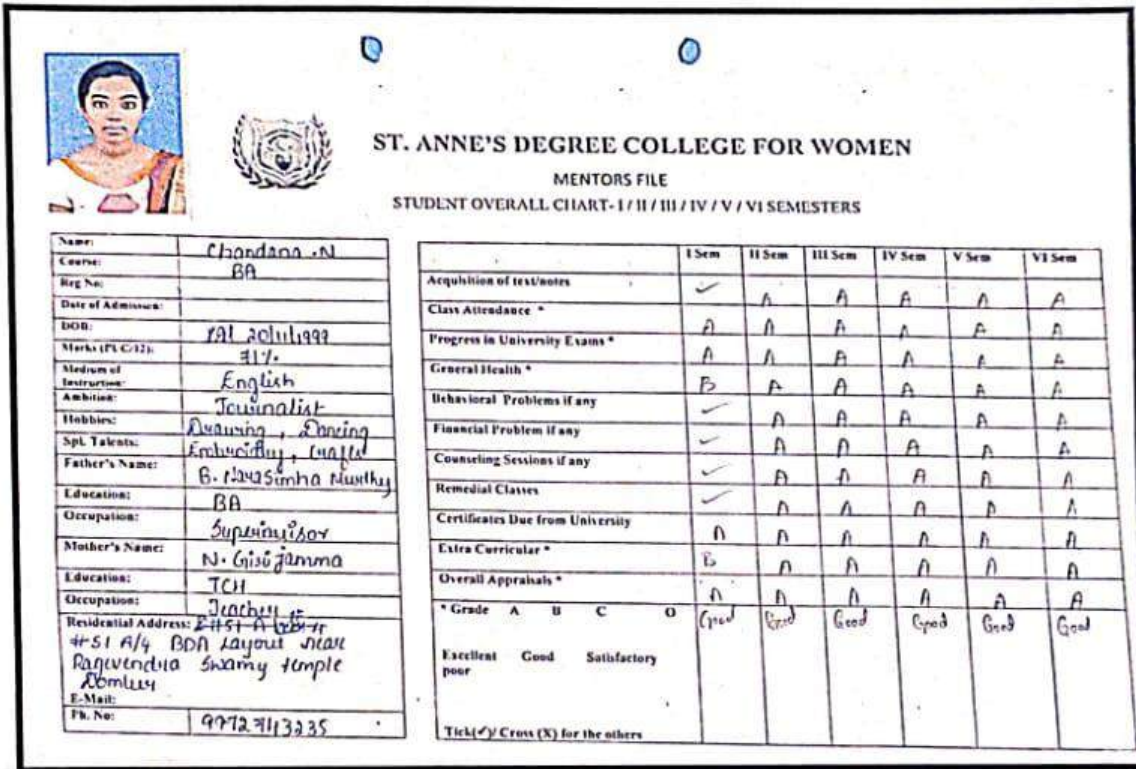 ST. ANNE'S DEGREE COLLEGE FOR WOMEN
MENTORS FILE
STUDENT OVERALL CHART- I / II / III / IV / V / VI SEMESTERS
Name: Chandana .N
Course: BA
Reg No:
Date of Admission:
DOB: 20/11/1999
Marks (PUC/12): 71%
Medium of Instruction: English
Ambition: Journalist
Hobbies: Drawing , Dancing
Spl. Talents: Embroidey , Crafts
Father's Name: B. Narasimha Murthy
Education: BA
Occupation: Superivisor
Mother's Name: N. Girijamma
Education: TCH
Occupation: Teacher
Residential Address:
#51 A/4 BDA Layout near
Ragevendra Swamy temple
Domlur
E-Mail:
Ph. No:
I Sem II Sem III Sem IV Sem V Sem VI Sem
Acquisition of text/notes ✓ A A A A A
Class Attendance * A A A A A A
Progress in University Exams * A A A A A A
General Health * B A A A A A
Behavioral Problems if any ✓ A A A A A
Financial Problem if any ✓ A A A A A
Counseling Sessions if any ✓ A A A A A
Remedial Classes ✓ A A A A A
Certificates Due from University A A A A A A
Extra Curricular * B A A A A A
Overall Appraisals * A A A A A A
* Grade A B C O Good Good Good Good Good Good
Excellent Good Satisfactory
poor
Tick(✓)/ Cross (X) for the others